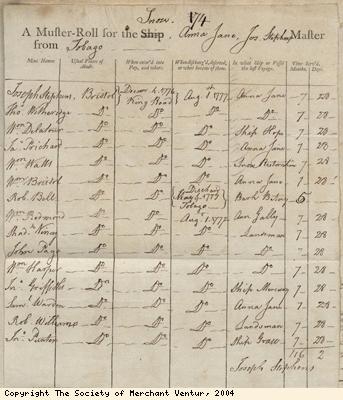 Snow 174
A Muster-Roll for the Ship Anna Jane, Jos. Stephens Master
from Tobago
Mens Names Usual Places of Abode. When enter'd into Pay, and where. When discharg'd, deserted, or what became of them. In what Ship or Vessel the last Voyage. Time Serv'd. Months. Days.
Joseph Stephens, Bristol Decem 4. 1776 King Road Aug 1. 1777 Anna Jane 7 28
Tho. Witheridge Do Do Do Do 7 28
Wm Delatour Do Do Do Ship Hope 7 28
Ja. Prichard Do Do Do Anna Jane 7 28
Wm Watts Do Do Do Snow 7 28
Wm Bristol Do Do Do Anna Jane 7 28
Rob. Bell Do Do Dischar May 4. 1777 Tobago Bark Betsey 5
Wm Do Do Aug 1. 1777 Ann Gally 7 28
Do Do Do Landsman 7 28
John Do Do Do Do 7 28
Wm Harper Do Do Do Do 7 28
Jn. Griffiths Do Do Do Ship 7 28
Saml Warden Do Do Do Anna Jane 7 28
Rob. Williams Do Do Do Landsman 7 28
Jn. Do Do Do Ship Grace 7 28
116 2
Joseph Stephens
Copyright The Society of Merchant Ventur, 2004